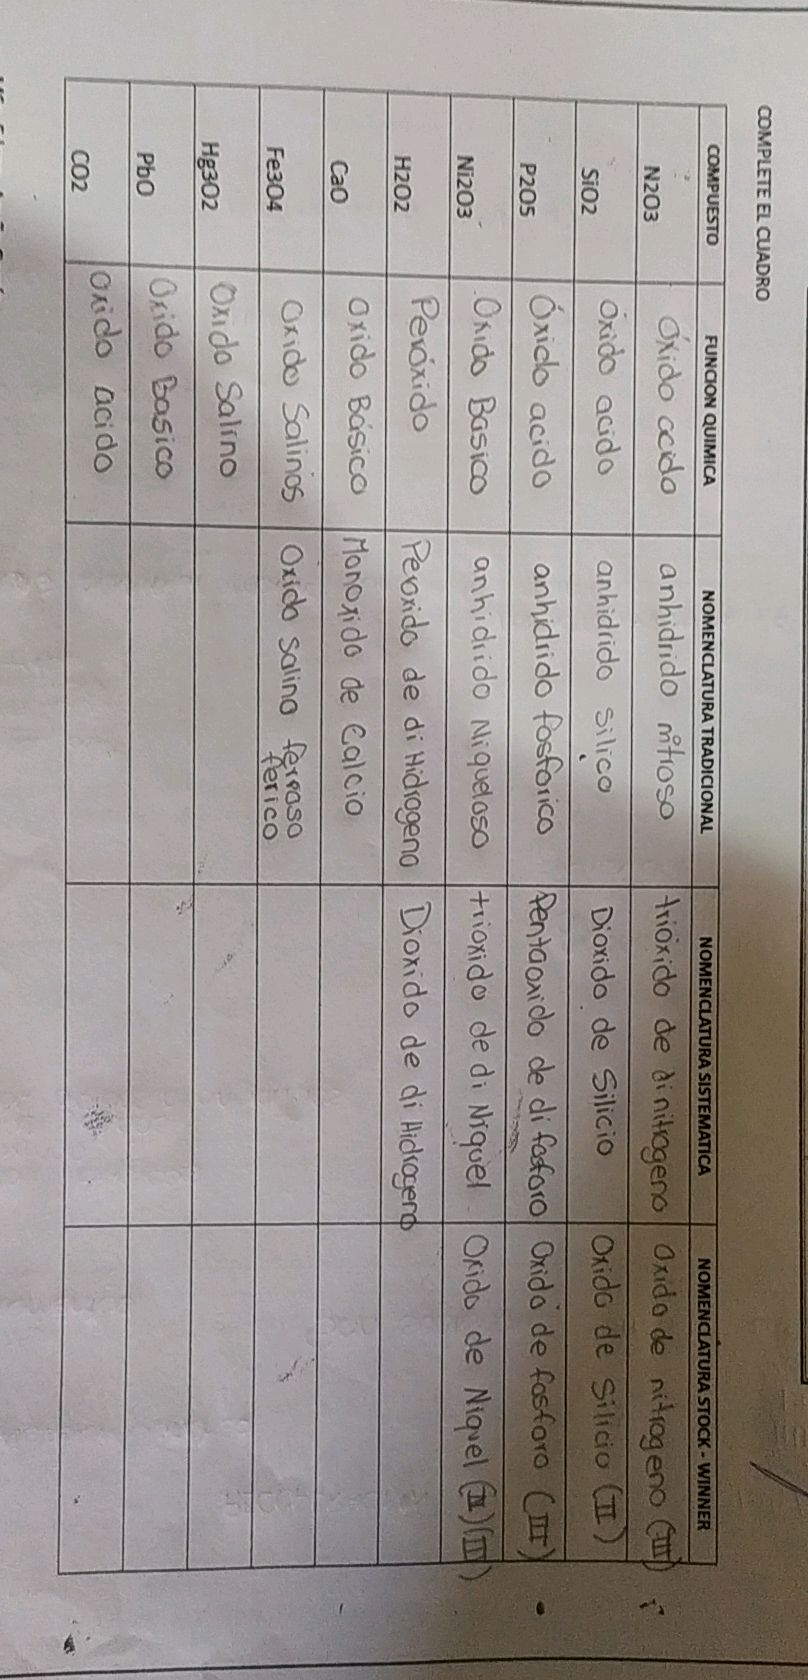 COMPLETE EL CUADRO
COMPUESTO FUNCION QUIMICA NOMENCLATURA TRADICIONAL NOMENCLATURA SISTEMATICA NOMENCLATURA STOCK - WINNER
N2O3 Óxido acido anhidrido nitroso trióxido de dinitrogeno Oxido de nitrogeno (III)
SiO2 óxido acido anhidrido silico Dioxido de Silicio Oxido de Silicio (II)
P2O5 Óxido acido anhidrido fosforico Pentaoxido de di fosforo Oxido de fosforo (III)
Ni2O3 Oxido Basico anhidrido Niqueloso trioxido de di Niquel Oxido de Niquel (III)
H2O2 Peróxido Peroxido de di Hidrogeno Dioxido de di Hidrogeno
CaO Oxido Básico Monoxido de Calcio
Fe3O4 Oxido Salinos Oxido Salino ferroso
ferico
Hg3O2 Oxido Salino
PbO Oxido Basico
CO2 Oxido acido